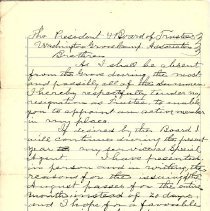 The President & Board of Trustees
Washington Grove Camp Association
Brethren
As I shall be absent
from the Grove during the most
and possibly all of the Summer
I hereby respectfully tender my
resignation as Trustee, to enable
you to appoint an active member
in my place.
If desired by the Board I
will continue during the present
year my services as Special
Agent. I have presented
in person and in writing the
reasons for the issuing the
August passes for the entire
month instead of 20 days
and I hope for a favorable